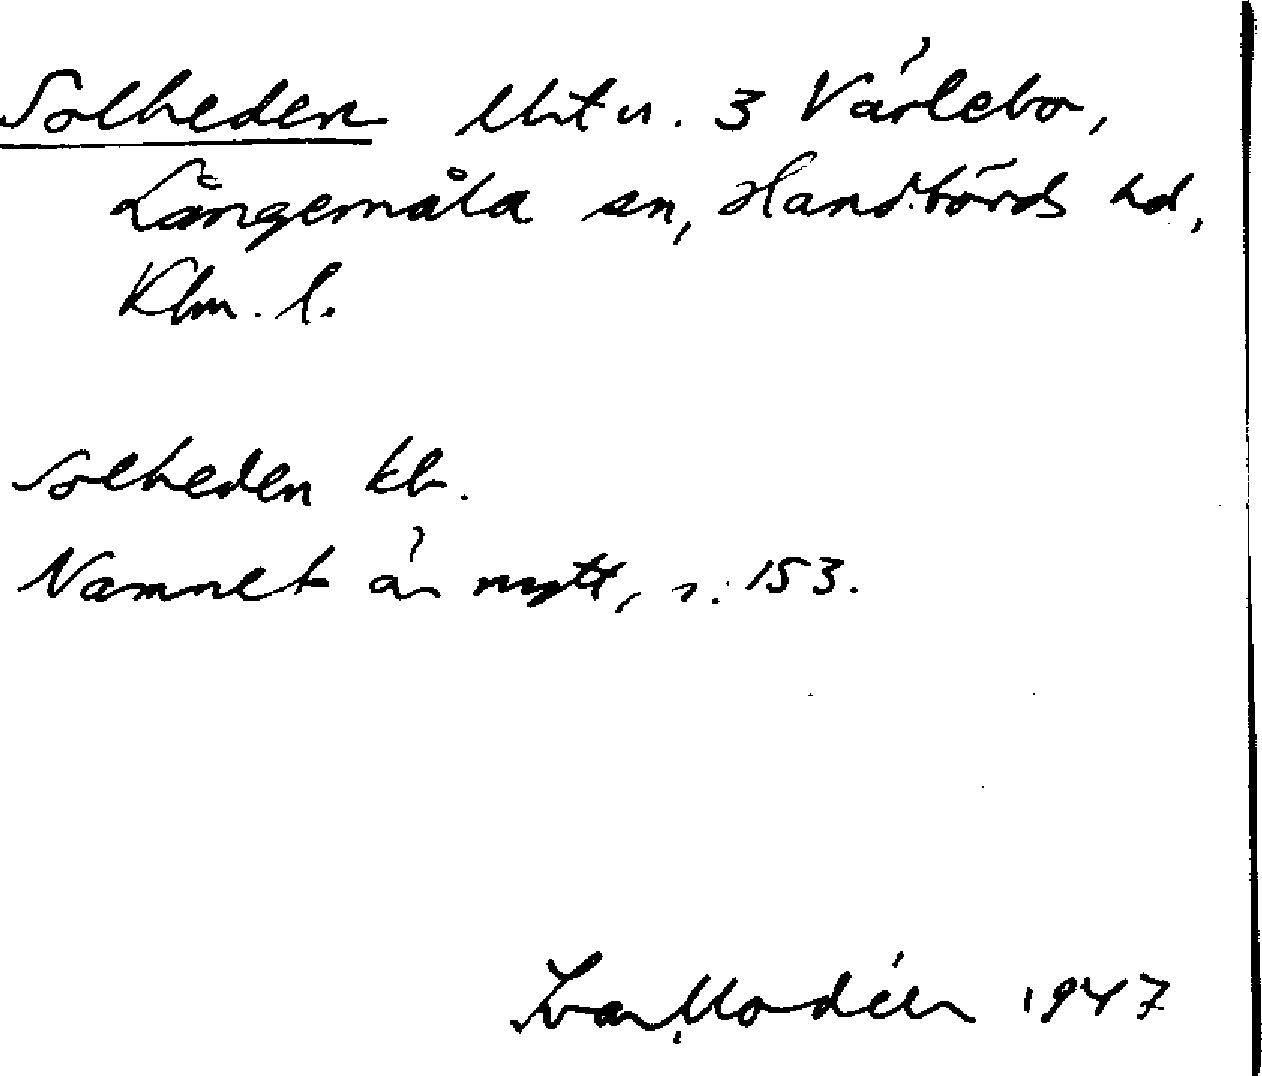 Solheden Mtu. 3 Värlebo,
Långemåla sn, Handbörds hd,
Klm. l.
Solheden kb.
Namnet är nytt, s. 153.
Ivar Modéer 1947